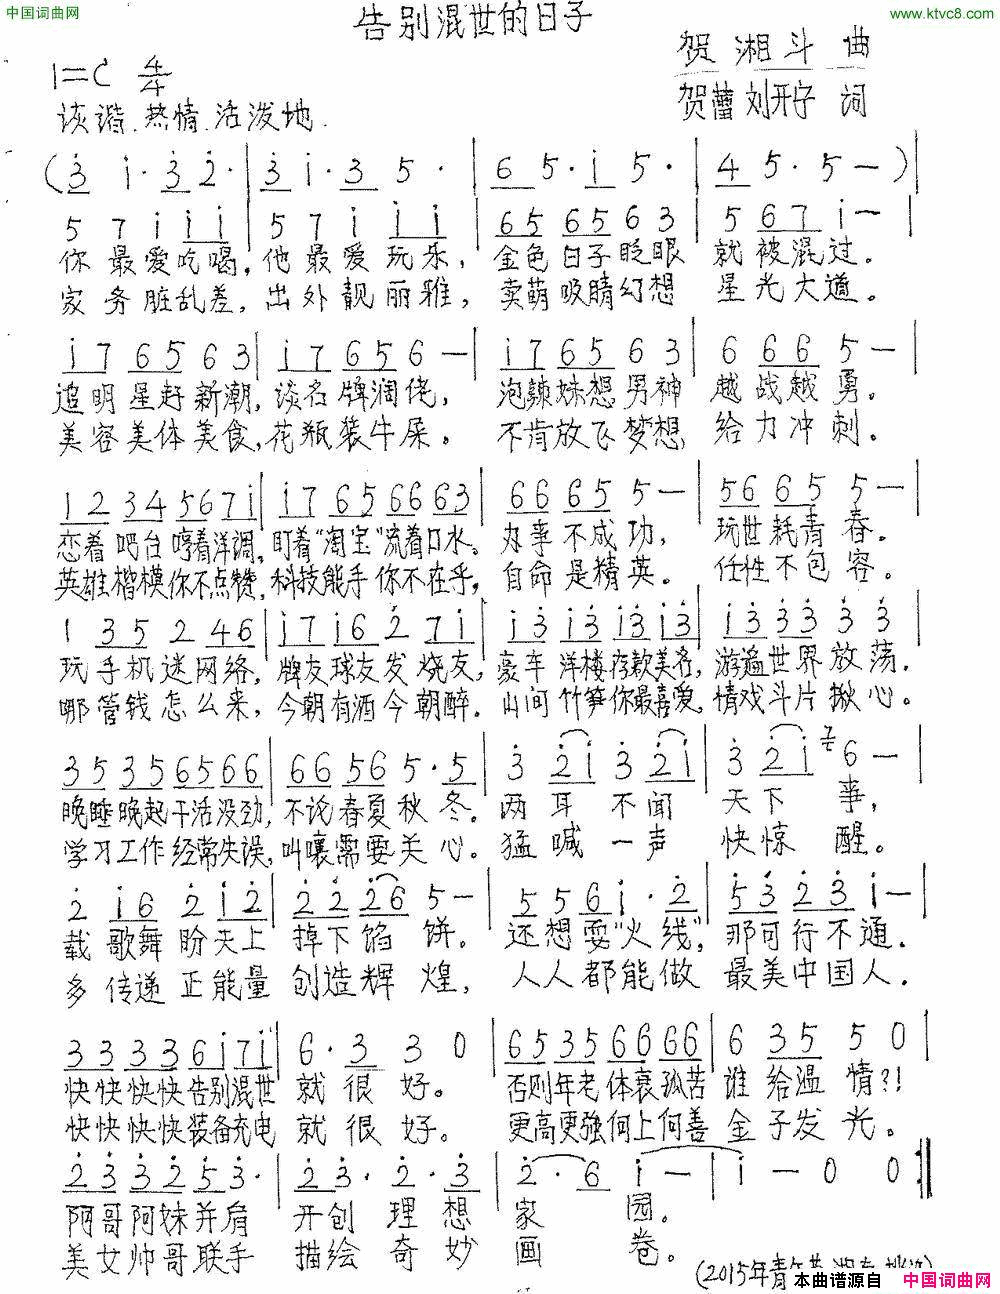 中国词曲网
告别混世的日子
www.ktvc8.com
贺湘斗 曲
1=C 4/4
贺蕾 刘开宇 词
诙谐、热情、活泼地.
(3 1· 3 2· | 3 1· 3 5· | 6 5· 1 5· | 4 5· 5 — )|
5 7 1 1 1 | 5 7 1 1 1 | 65 65 6 3 | 5 67 1 — |
你最爱吃喝,他最爱玩乐,金色日子眨眼就被混过。
家务脏乱差,出外靓丽雅,卖萌吸睛幻想星光大道。
17 65 6 3 | 17 65 6 — | 17 65 6 3 | 6 66 5 — |
追明星赶新潮,谈名牌阔佬,泡辣妹想男神越战越勇。
美容美体美食,花瓶装牛屎。不肯放飞梦想,给力冲刺。
12 34 56 71 | 17 65 66 63 | 66 65 5 — | 56 65 5 — |
恋着吧台哼着洋调,盯着“淘宝”流着口水。办事不成功,玩世耗青春。
英雄楷模你不点赞,科技能手你不在乎,自命是精英.任性不包容。
1 35 2 46 | 17 16 2 71 | 13 13 13 13 | 13 33 3 3 |
玩手机迷网络,牌友球友发烧友,豪车洋楼存款美名,游遍世界放荡.
哪管钱怎么来,今朝有酒今朝醉.山间竹笋你最喜爱,情戏斗片揪心。
35 35 65 66 | 66 56 5· 5 | 3 21 3 21 | 3 21 7 6 — |
晚睡晚起干活没劲,不论春夏秋冬。两耳不闻天下事,
学习工作经常失误,叫嚷需要关心。猛喊一声快惊醒。
2 16 2 12 | 22 26 5 — | 5 5 6 1· 2 | 53 23 1 — |
载歌舞盼天上掉下馅饼。还想耍“火线”,那可行不通.
多传递正能量创造辉煌,人人都能做最美中国人.
33 33 61 71 | 6· 3 3 0 | 65 35 66 66 | 6 35 5 0 |
快快快快告别混世就很好。否则年老体衰孤苦谁给温情?!
快快快快装备充电就很好。更高更强何上何善金子发光。
23 32 53· | 23· 2· 3 | 2· 6 1 — | 1 — 0 0 :|
阿哥阿妹并肩开创理想家园。
美女帅哥联手描绘奇妙画卷。
(2015年青年节
本曲谱源自 中国词曲网